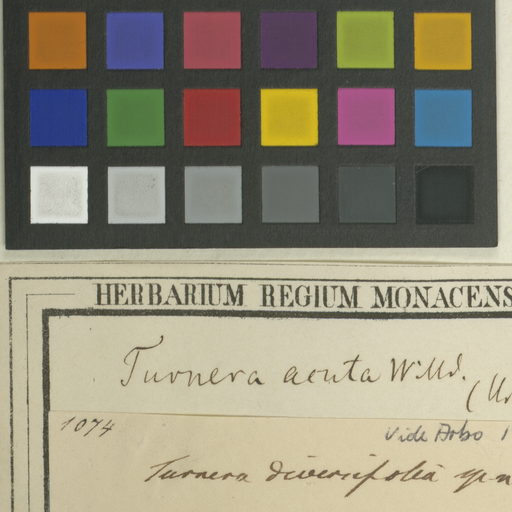 HERBARIUM REGIUM MONACENS
Turnera acuta Willd.
(Ur
1074
Vide Arbo 1
Turnera diversifolia sp. n